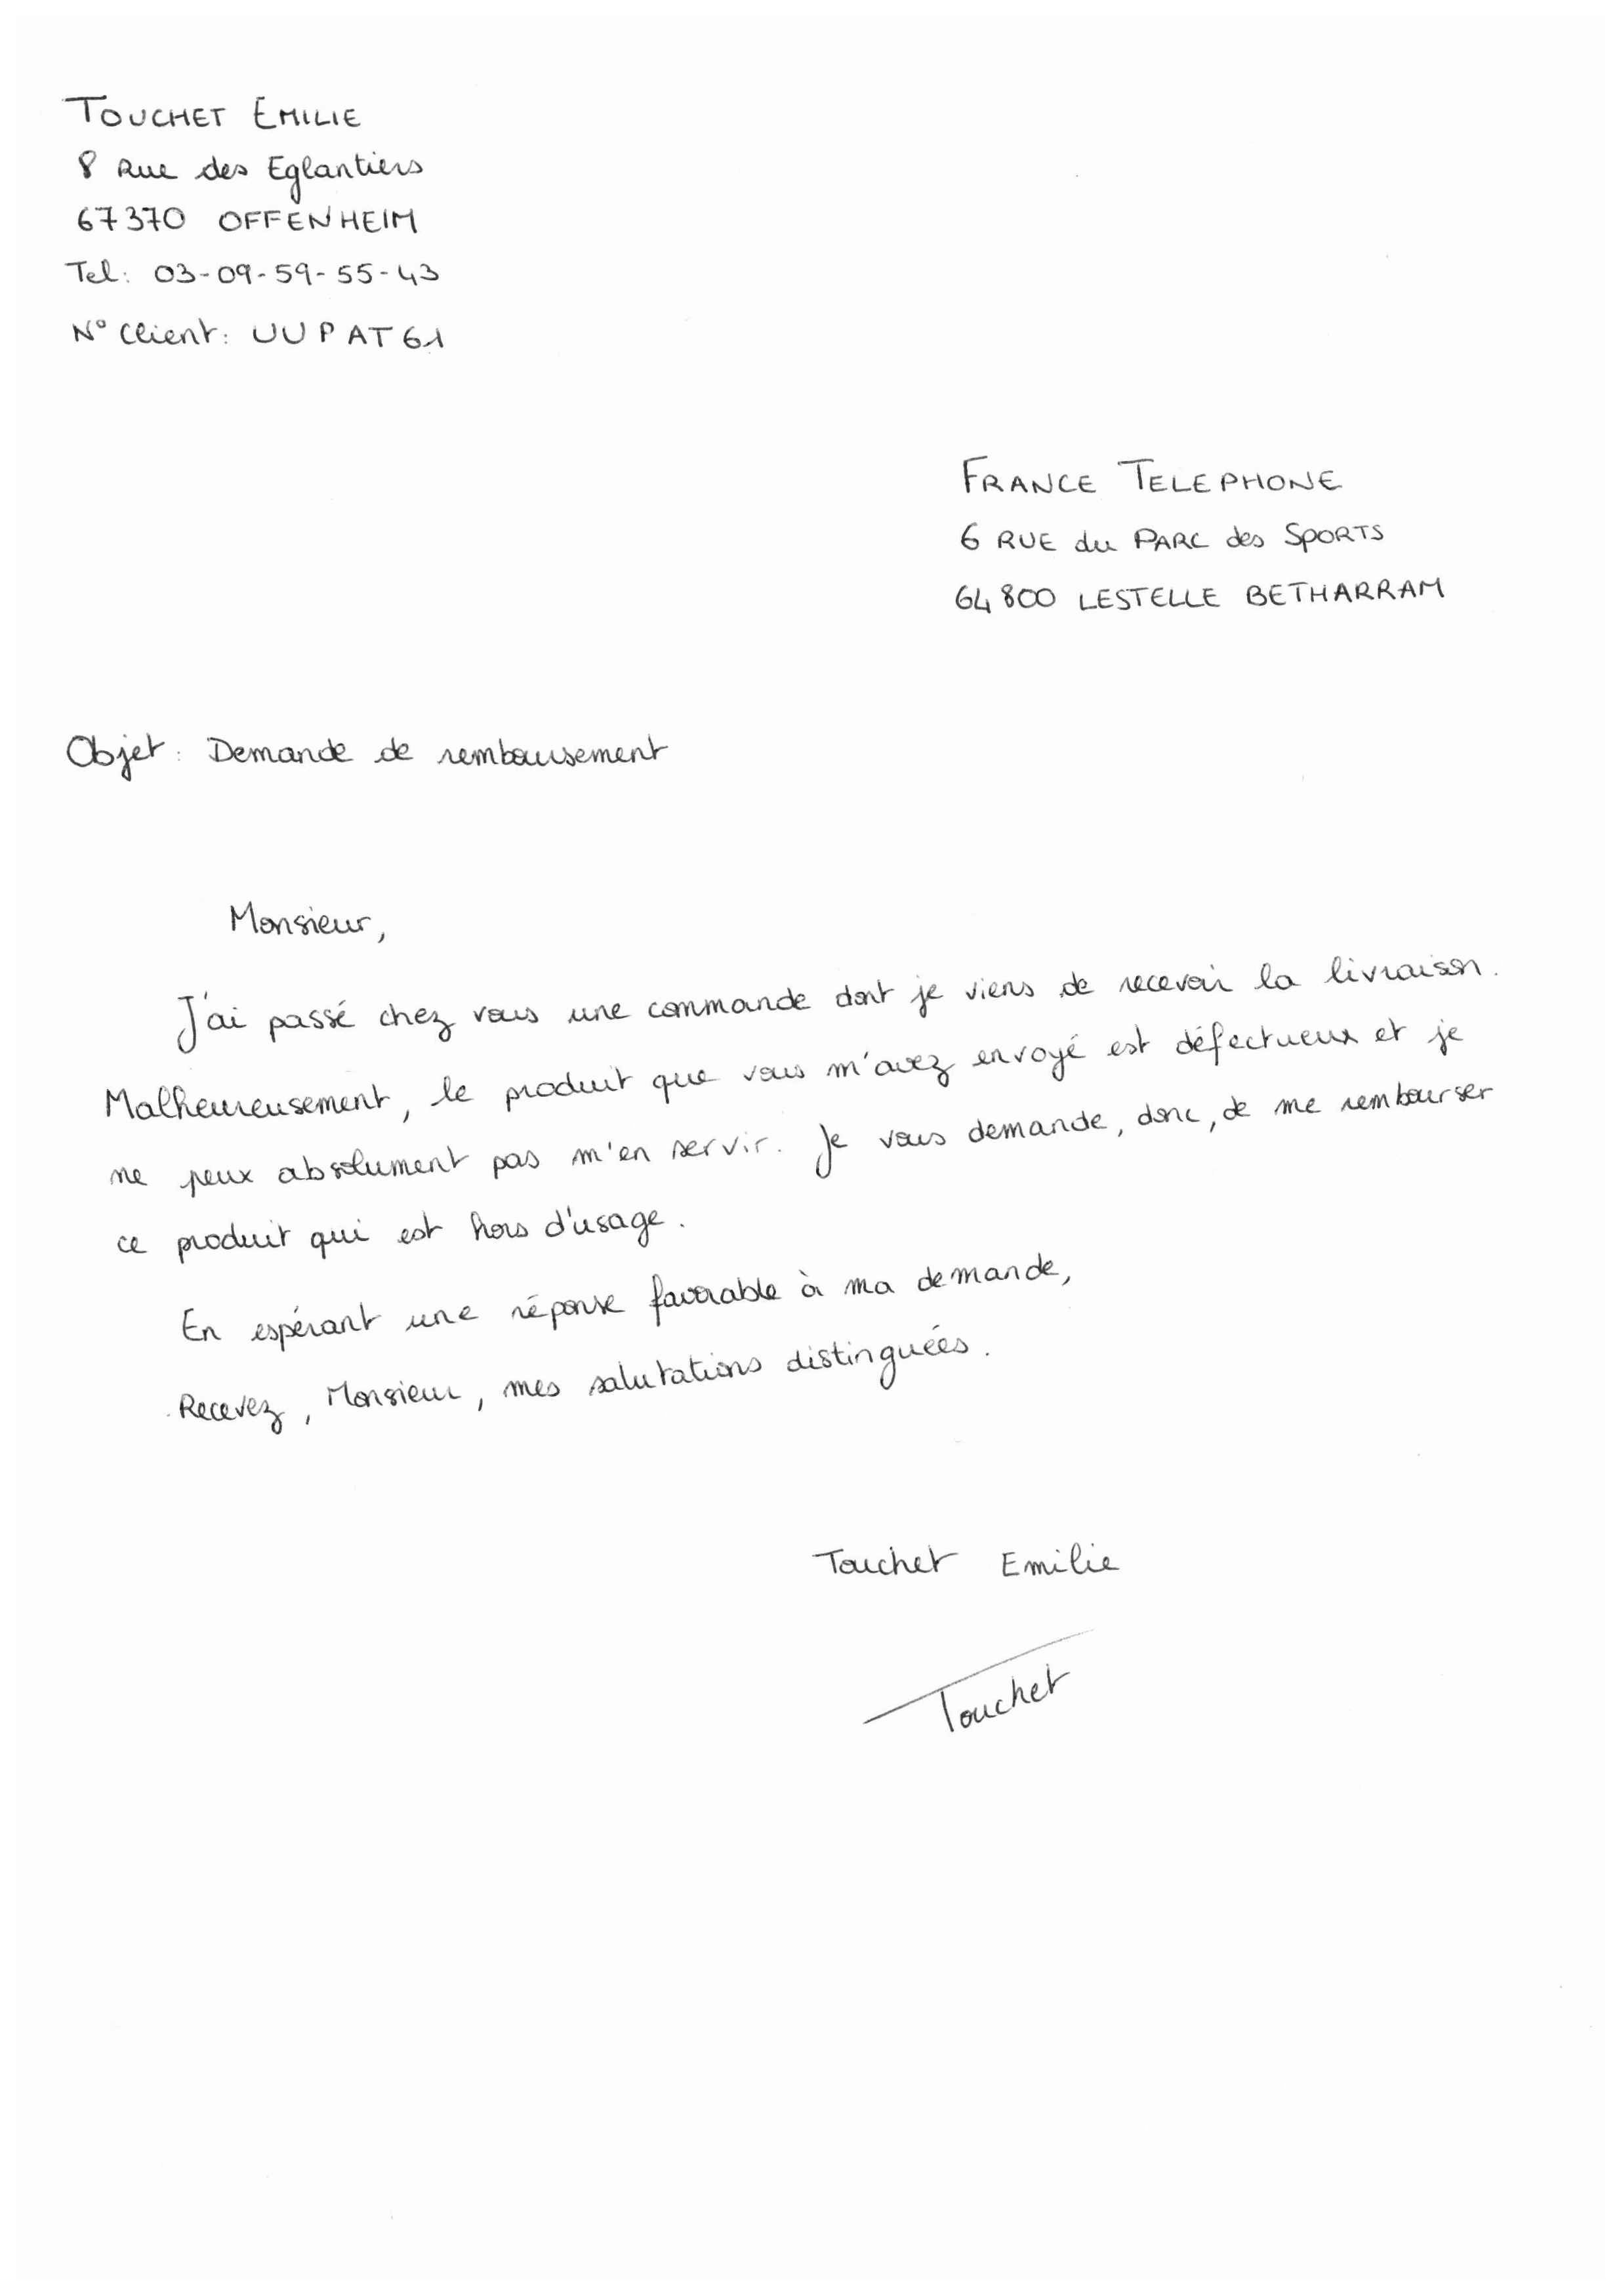 TOUCHET EMILIE
8 Rue des Eglantiers
67370 OFFENHEIM
Tel: 03-09-59-55-43
N° Client: UUPAT61
FRANCE TELEPHONE
6 RUE du PARC des SPORTS
64800 LESTELLE BETHARRAM
Objet: Demande de remboursement
Monsieur,
J'ai passé chez vous une commande dont je viens de recevoir la livraison.
Malheureusement, le produit que vous m'avez envoyé est défectueux et je
ne peux absolument pas m'en servir. Je vous demande, donc, de me rembourser
ce produit qui est hors d'usage.
En espérant une réponse favorable à ma demande,
Recevez, Monsieur, mes salutations distinguées.
Touchet Emilie
Touchet